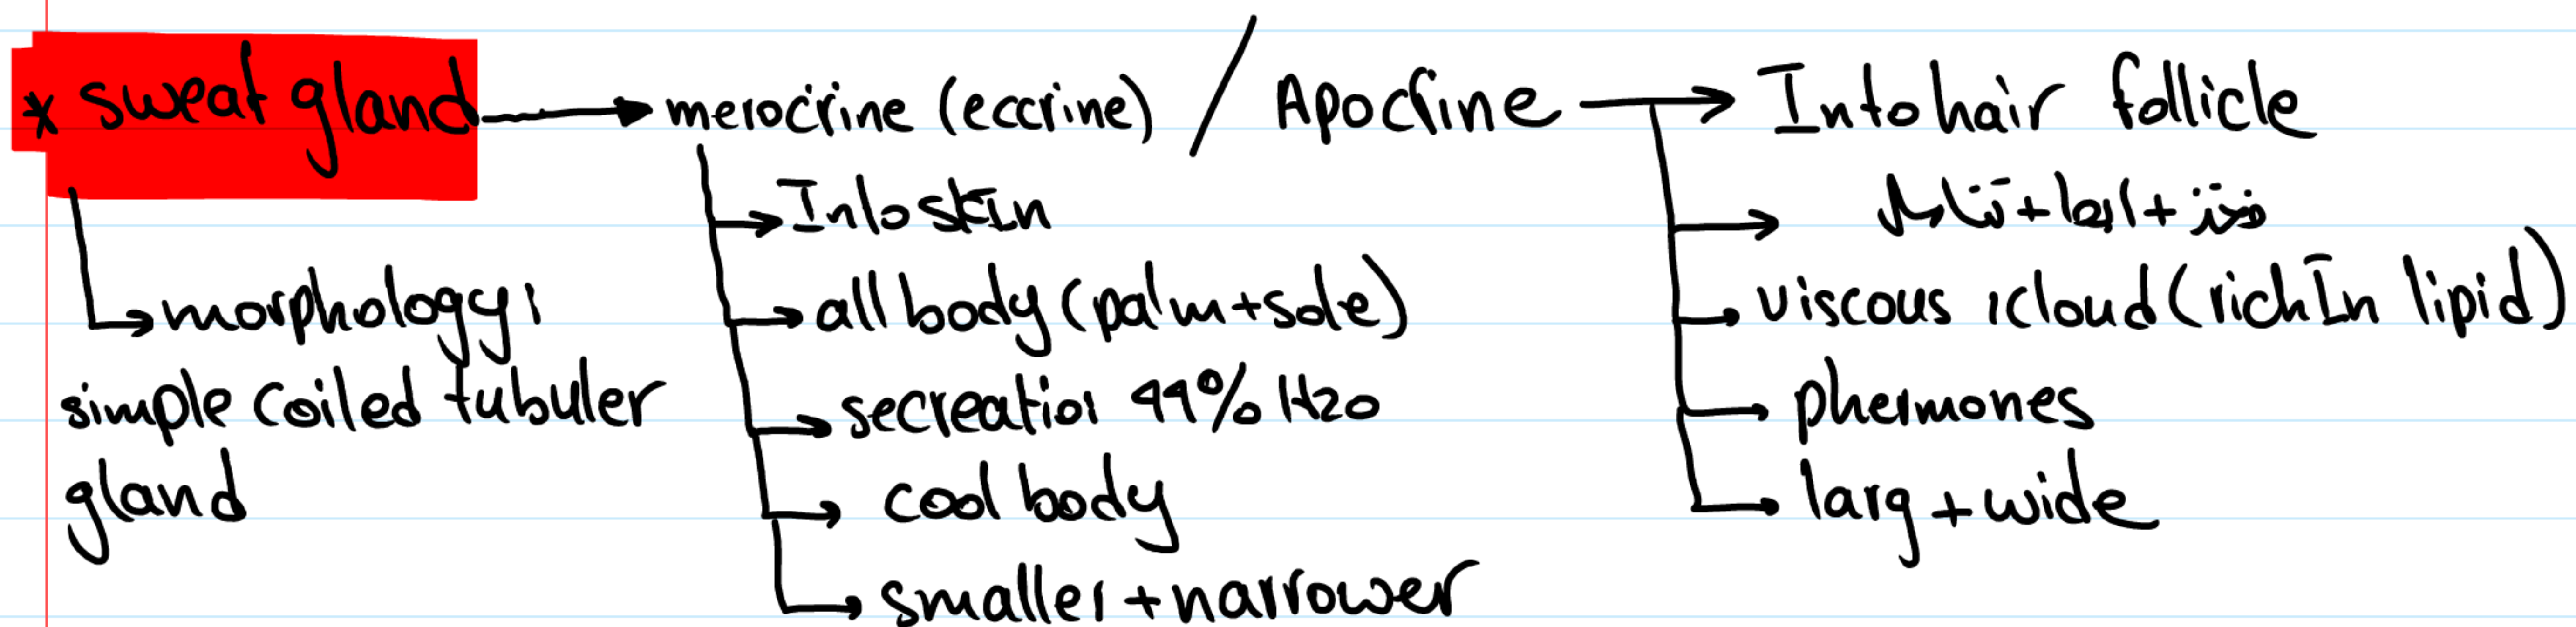 * sweat gland → merocrine (eccrine) / Apocrine → Into hair follicle
→ morphology:
simple coiled tubuler
gland
→ Into skin
→ all body (palm+sole)
→ secreation 99% H2O
→ cool body
→ smaller + narrower
→ viscous ,cloud (rich In lipid)
→ phermones
→ larg + wide